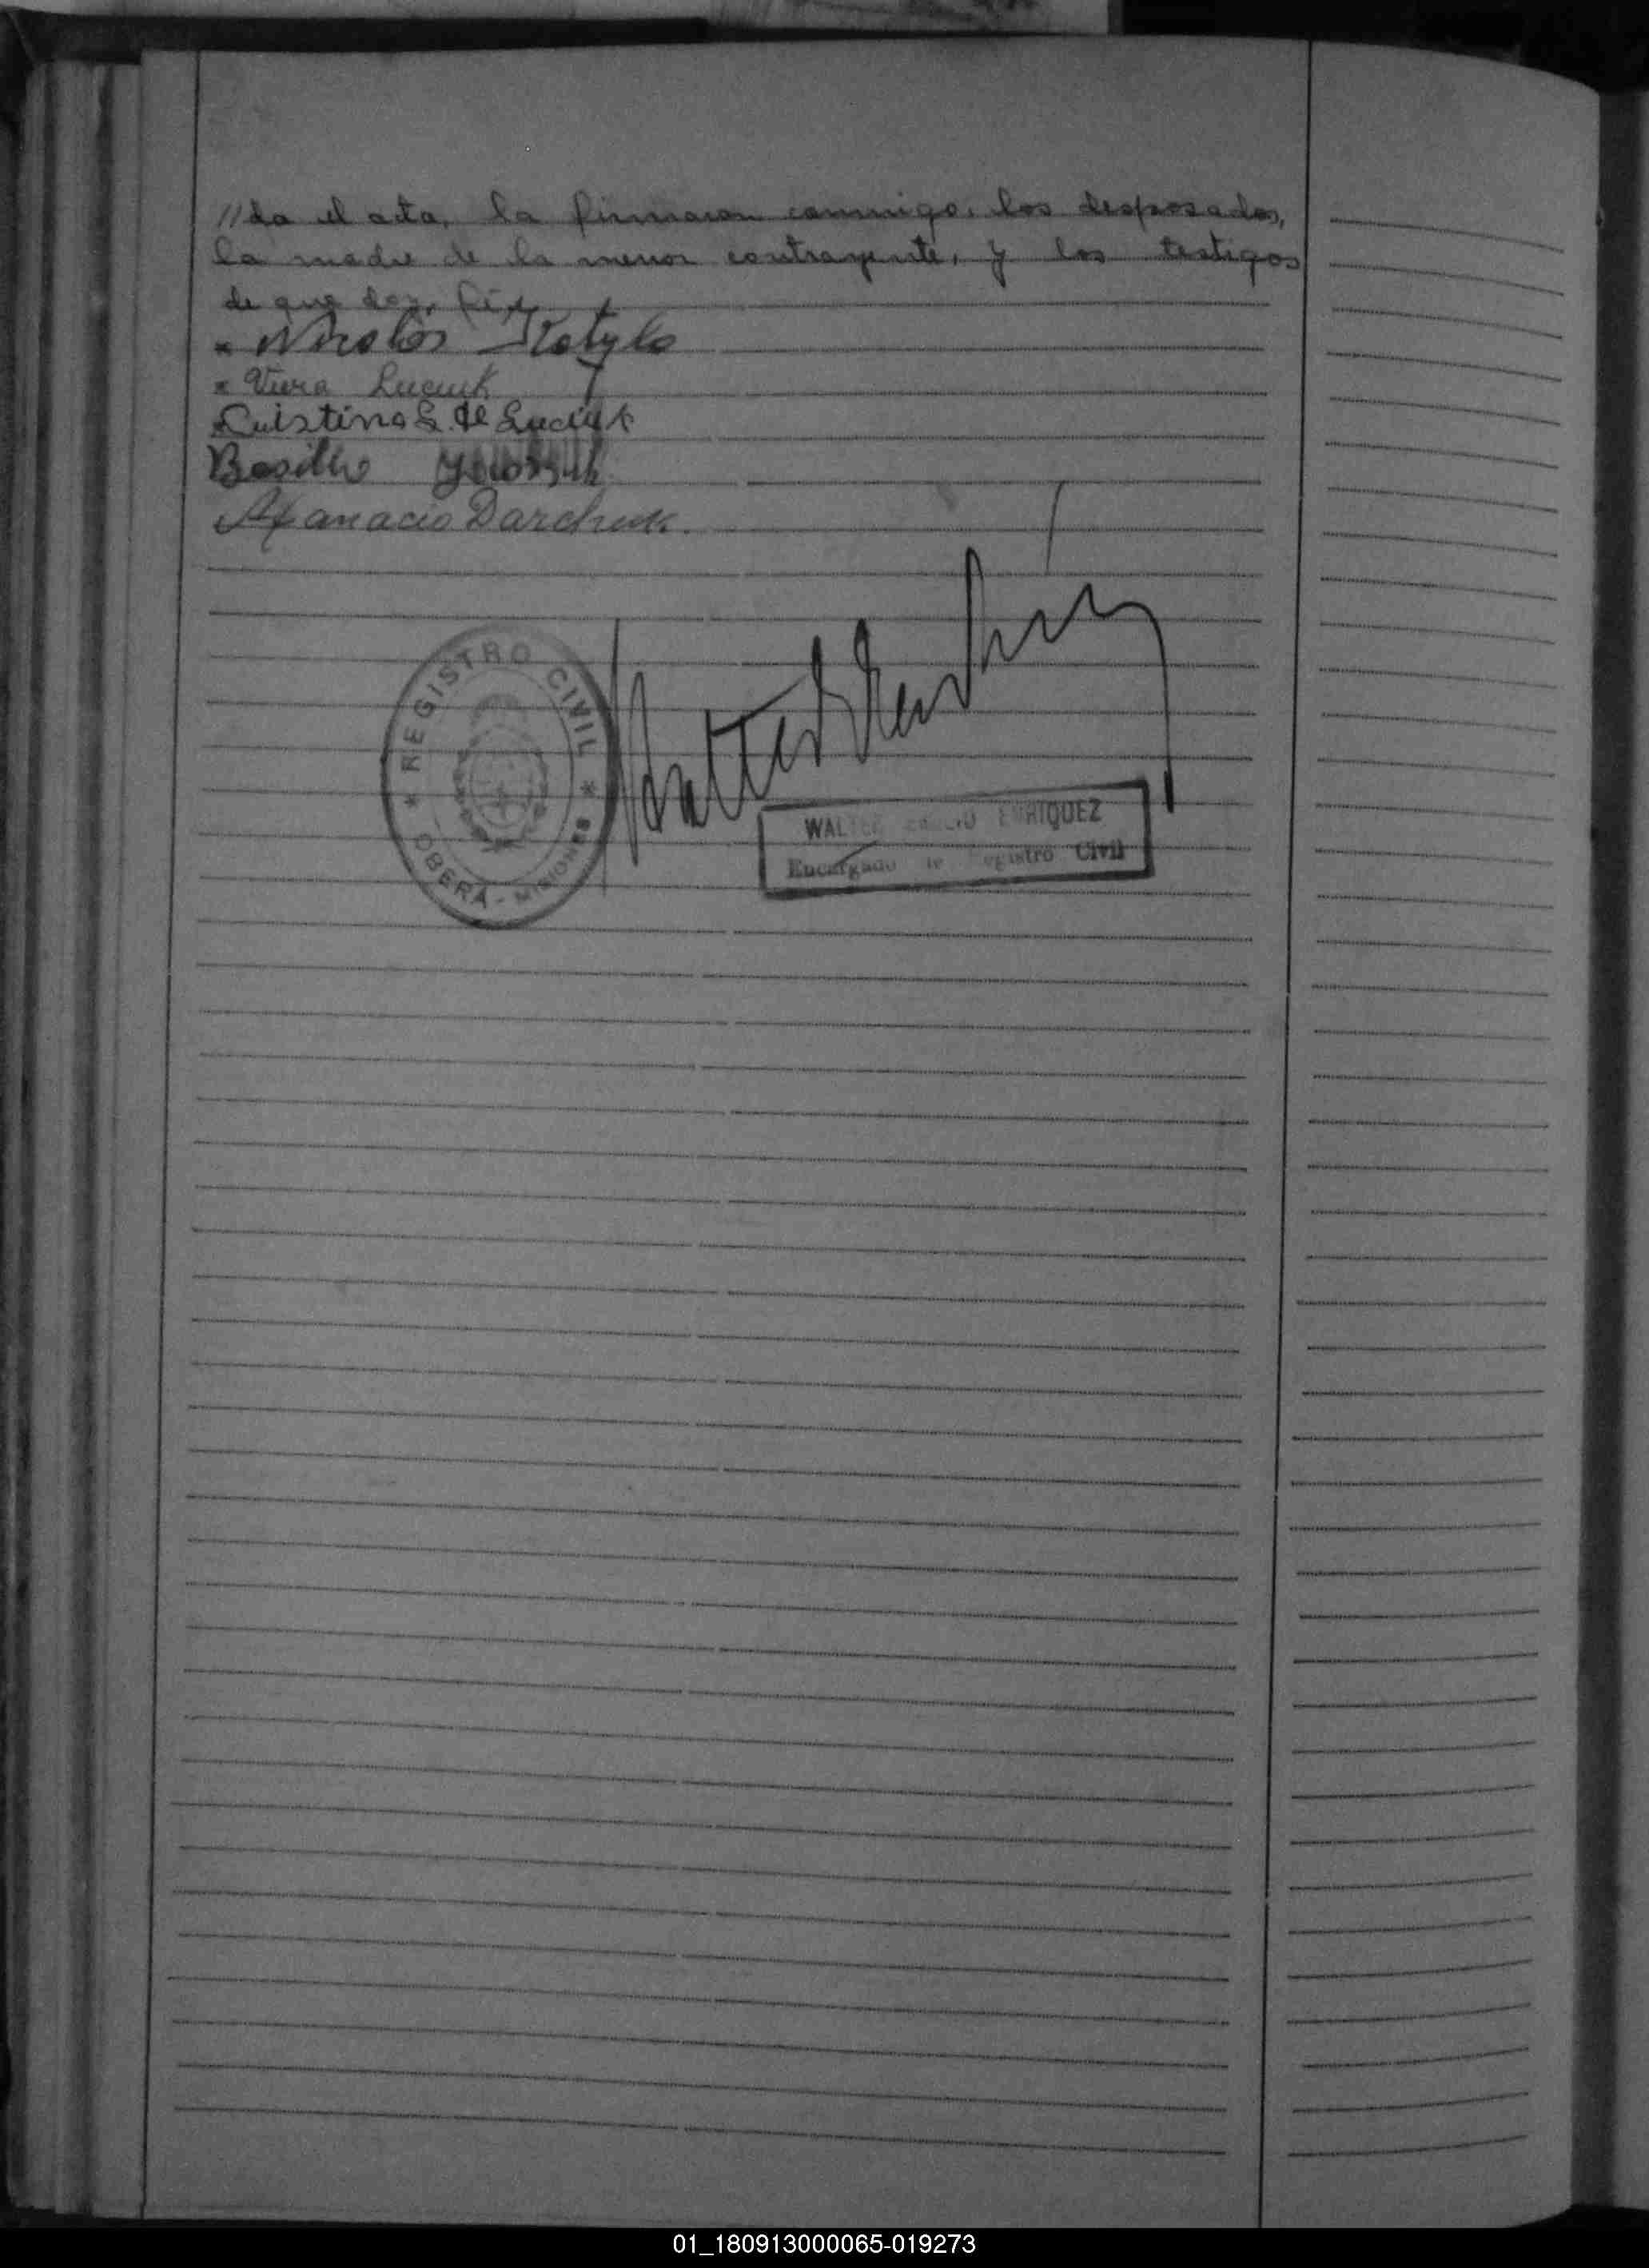 //da el acta, la firmaron conmigo, los desposados,
la madre de la menor contrayente, y los testigos
de que doy fé.
Nicolás Kotylo
Viera Luciuk
Cristina S. de Luciuk
Basilio
Afanacio Darchuk.
REGISTRO CIVIL
OBERÁ - MISIONES
WALTER ENRIQUEZ
Encargado de Registro Civil
01_180913000065-019273